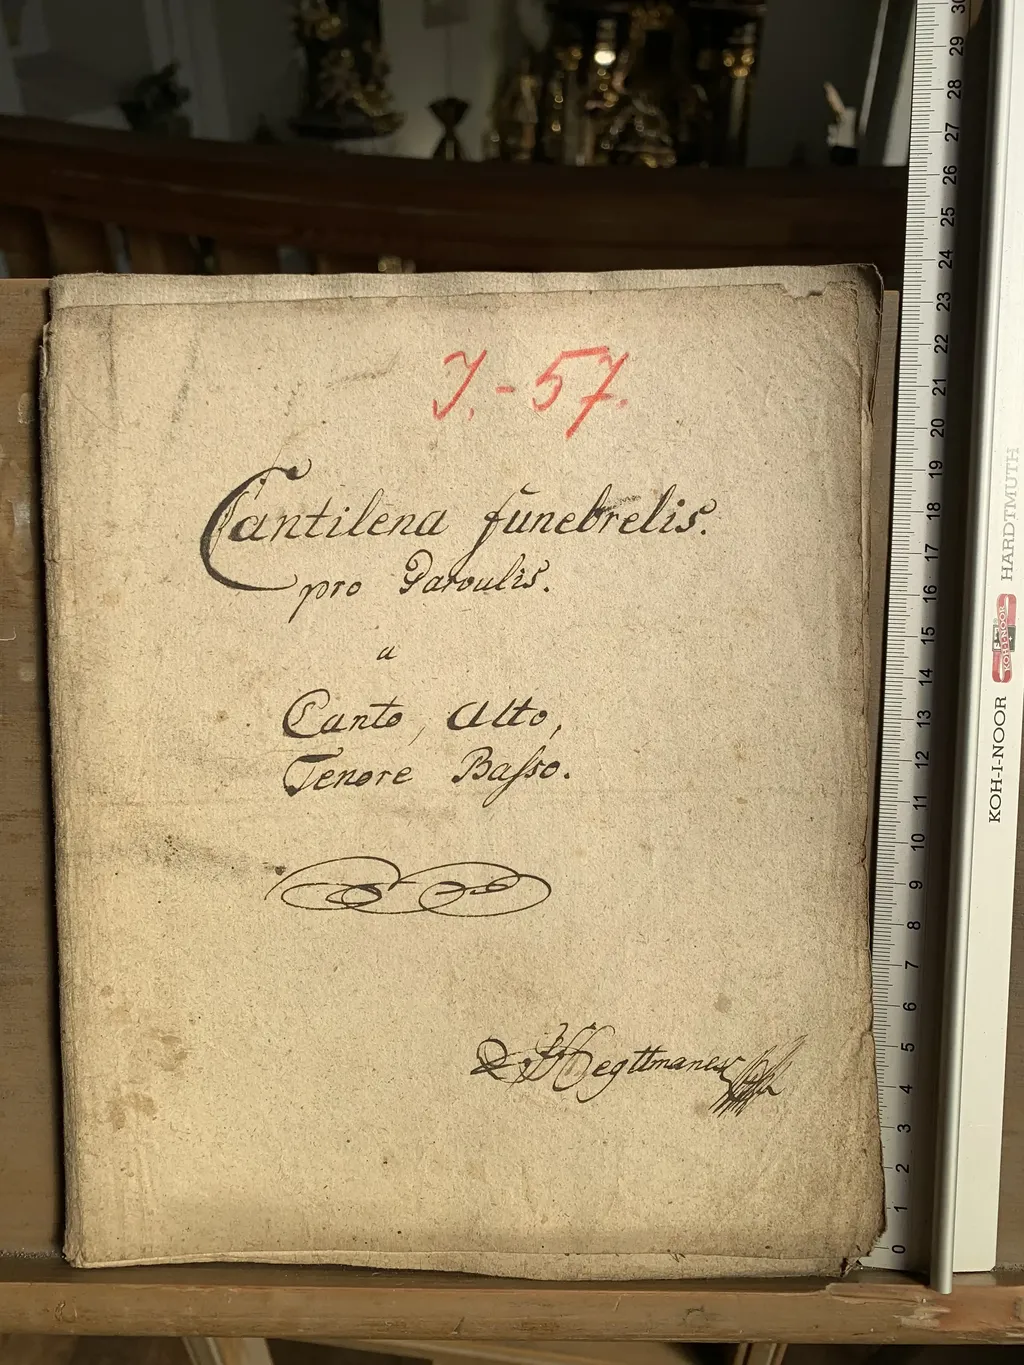 J.-57.
Cantilena funebrelis.
pro Parvulis.
a
Canto, Alto,
Tenore Basso.
Hegttmaner
30
29
28
27
26
25
24
23
22
21
20
19
18
17
16
15
14
13
12
11
10
9
8
7
6
5
4
3
2
1
0
KOH-I-NOOR
KOH-I-NOOR HARDTMUTH